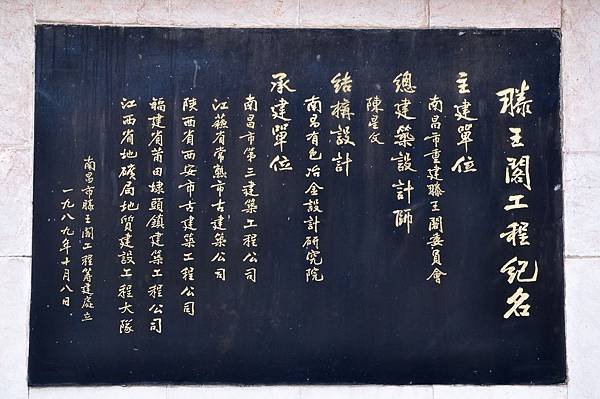 滕王閣工程紀名
主建單位
南昌市重建滕王閣委員會
總建築設計師
陳星文
結構設計
南昌有色冶金設計研究院
承建單位
南昌市第三建築工程公司
江蘇省常熟市古建築公司
陝西省西安市古建築工程公司
福建省莆田埭頭鎮建築工程公司
江西省地礦局地質建設工程大隊
南昌市滕王閣工程籌建處立
一九八九年十月八日